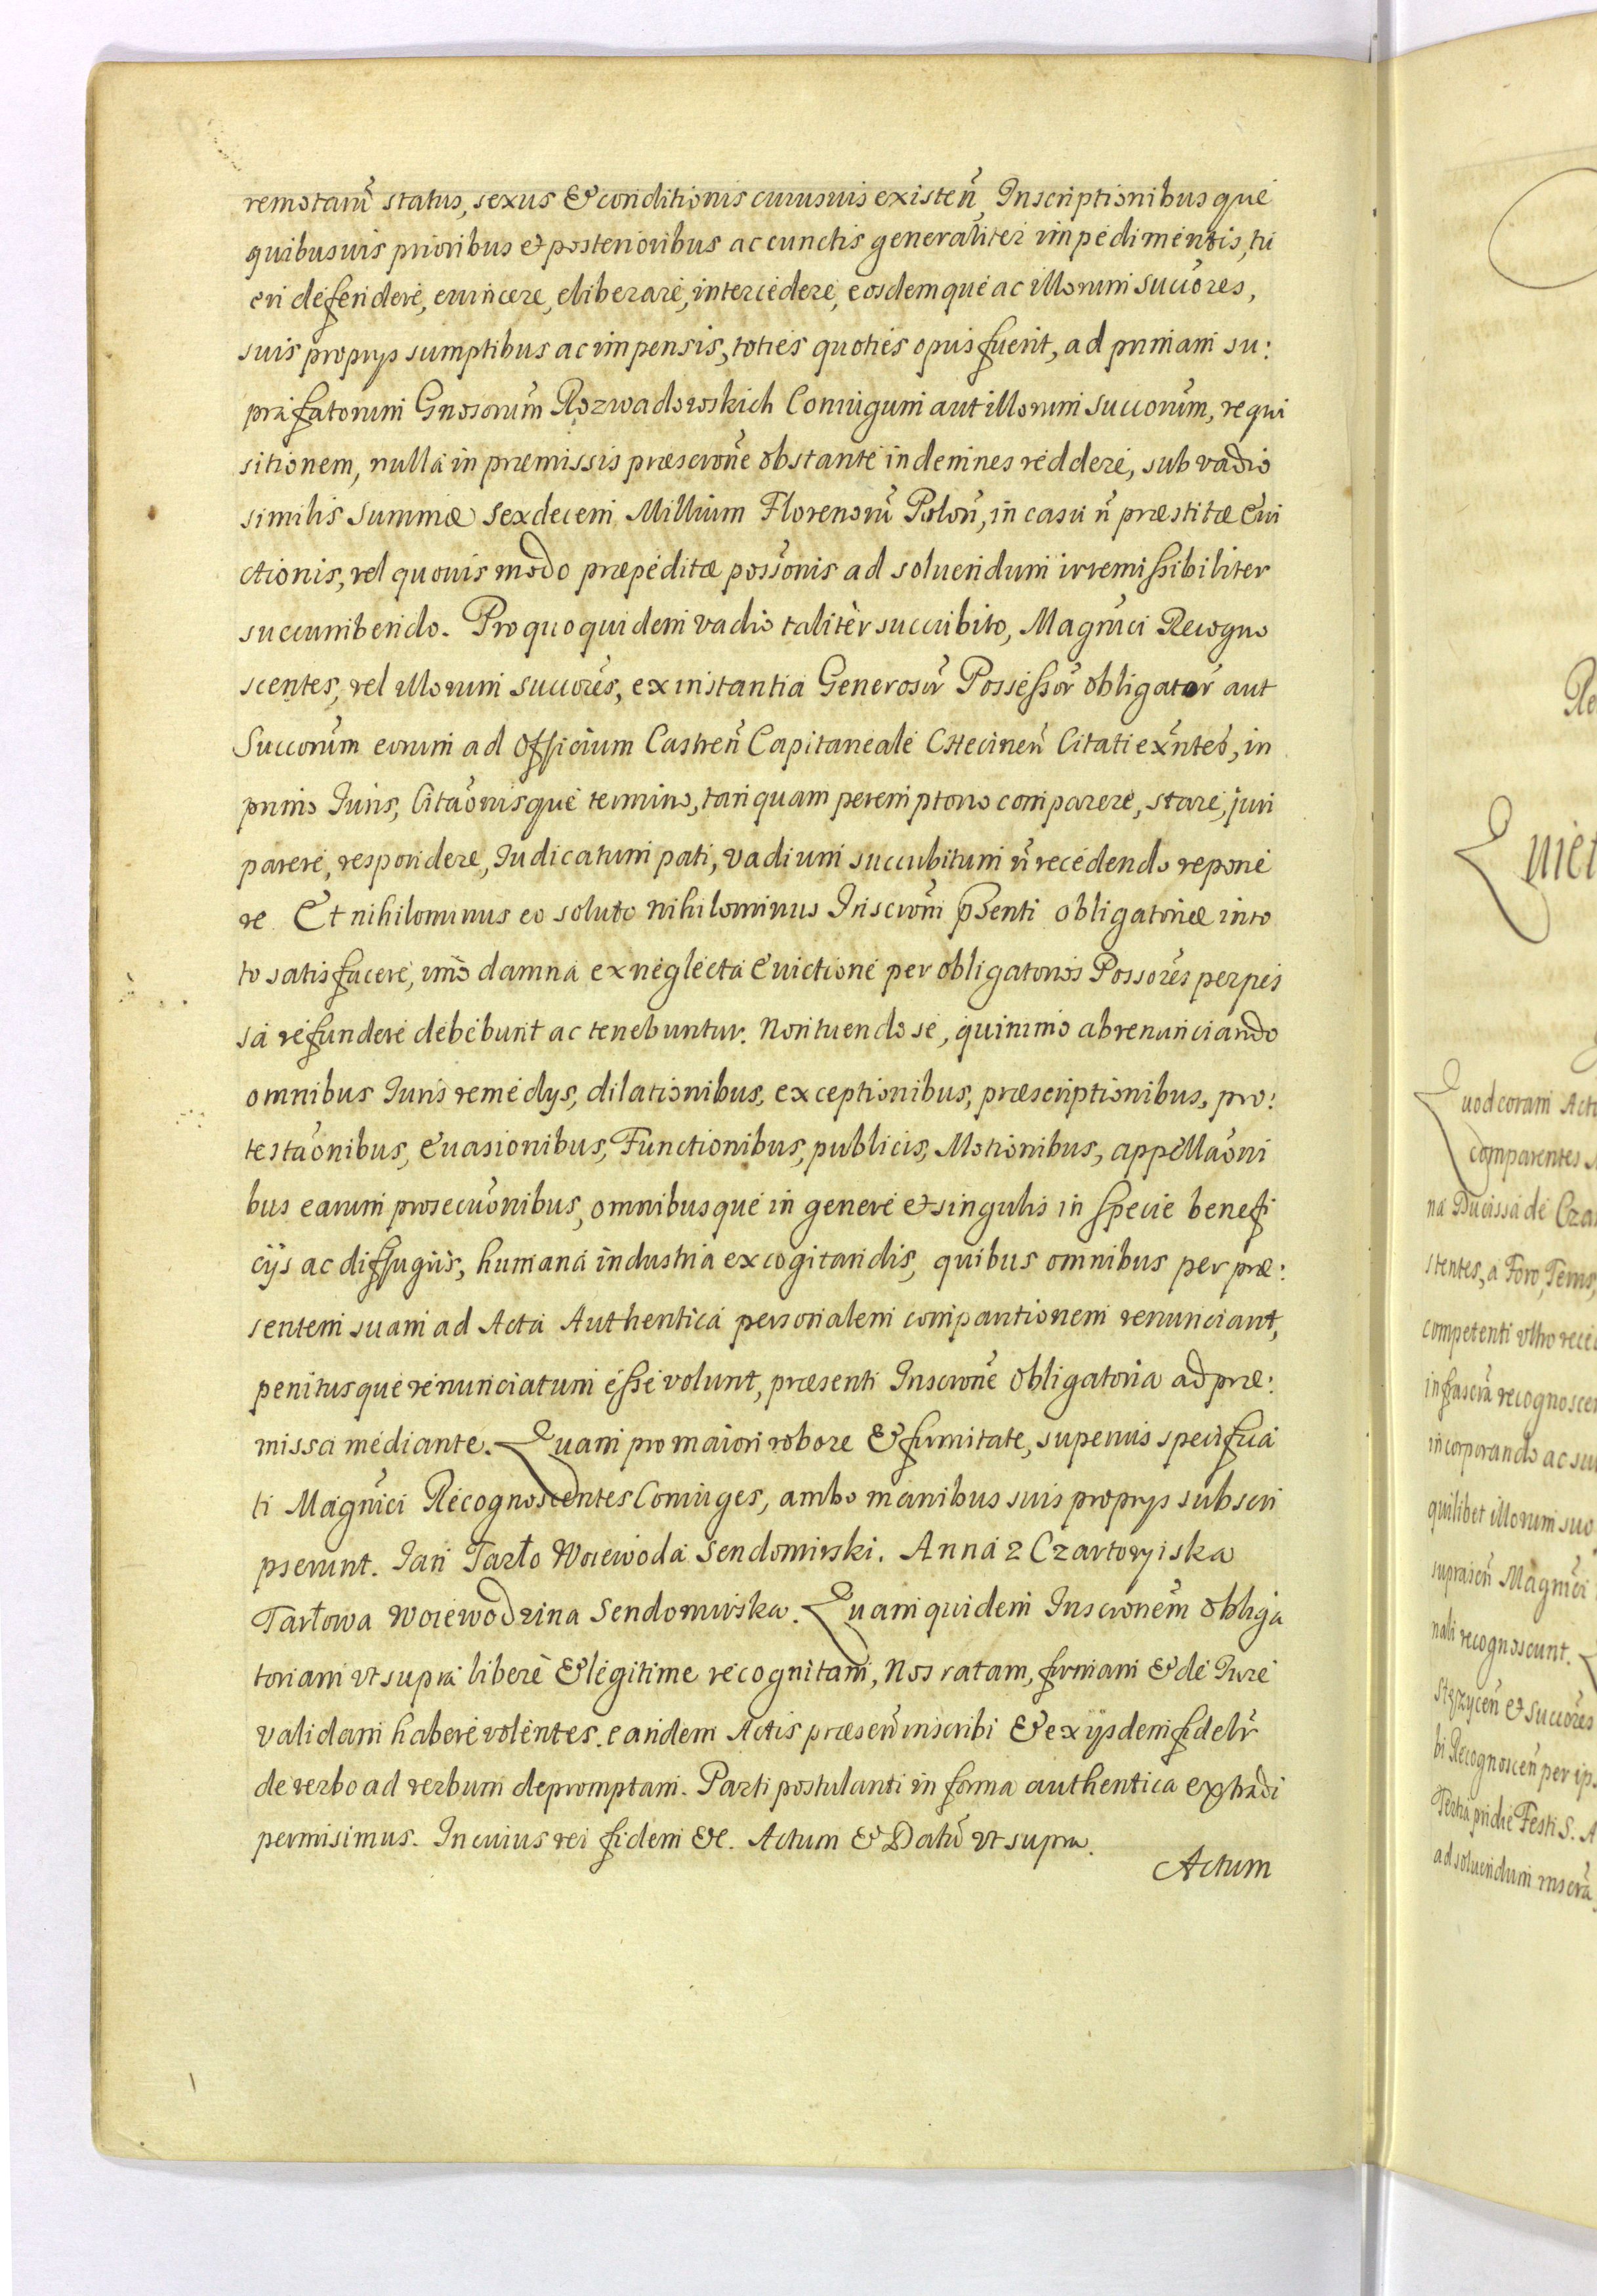 remotarũ status, sexus & conditionis cuiusuis existeñ, Inscriptionibusque
quibusuis prioribus et posterioribus ac cunctis generaliter impedimentis, tu
eri defendere, euincere, eliberare, intercedere, eosdemque ac illorum succores,
suis proprys sumptibus ac impensis, toties quoties opus fuerit, ad primam su:
præfatorum Gnosorum Rozwadowskich Coniugum aut illorum succorum, requi
sitionem, nulla in præmissis præscrone obstante indemnes reddere, sub vadio
similis summæ sexdecem Millium Florenorũ Poloñ, in casu ñ præstitæ Eui
ctionis, vel quouis modo præpeditæ possonis ad soluendum irremissibiliter
succumbendo. Pro quo quidem vadio taliter succubito, Magnici Recogno
scentes, vel illorum succores, ex instantia Generosor Possessor obligator aut
Succorum eorum ad Officium Castreñ Capitaneale Checineñ Citati exntes, in
primo Iuris, Citaonisque termino, tanquam peremptorio comparere, stare, juri
parere, respondere, Iudicatum pati, vadium succubitum ñ recedendo repone
re. Et nihilominus eo soluto nihilominus Inscroni pñenti obligatoriæ in to
to satisfacere, imo damna ex neglecta Euictione per obligatorios Possores perpes
sa refundere debebunt ac tenebuntur. Non tuendo se, quinimo abrenunciando
omnibus Iuris remedys, dilationibus, exceptionibus, præscriptionibus, pro:
testaonibus, Euasionibus, Functionibus, publicis, Motionibus, appellaoni
bus earum prosecuonibus, omnibusque in genere et singulis in specie benefi
cijs ac diffugiis, humana industria excogitandis, quibus omnibus per præ:
sentem suam ad Acta Authentica personalem comparitionem renunciant,
penitusque renunciatum esse volunt, præsenti Inscrone Obligatoria ad præ:
missa mediante. Quam pro maiori robore & firmitate, superius specifica
ti Magnici Recognoscentes Coniuges, ambo manibus suis proprys subscri
pserunt. Jan Tarło Woiewoda Sendomirski. Anna z Czartoryiska
Tarłowa Woiewodzina Sendomirska. Quam quidem Inscronem Obliga
toriam vt supra libere & legitime recognitam, Nos ratam, firmam & de Iure
validam habere volentes. eandem Actis præseñ inscribi & ex ijsdem fidelr
de verbo ad verbum depromptam. Parti postulanti in forma authentica extradi
permisimus. In cuius rei fidem &c. Actum & Datũ vt supra.
Actum
Quod coram Act
comparentes
na Ducissa de Cza
stentes, a Foro, Terris,
competenti vltro rece
infrascra recognoscen
incorporando ac su
quilibet illorum suo
suprascñ Magnici
nali recognoscunt.
Stęzyceñ et succores
bi Recognosceñ per ip
Tertia pridie Festi S. A
ad soluendum inscra